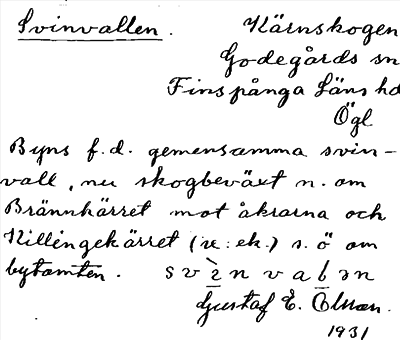 Svinvallen. Kärnskogen
Godegårds sn
Finspånga Läns hd
Ögl
Byns f.d. gemensamma svin-
vall, nu skogbeväxt n. om
Brännhärret mot åkrarna och
Killingekärret (re: ek.) s. ö om
bytomten. svènvalən
Gustaf E. Olsson.
1931